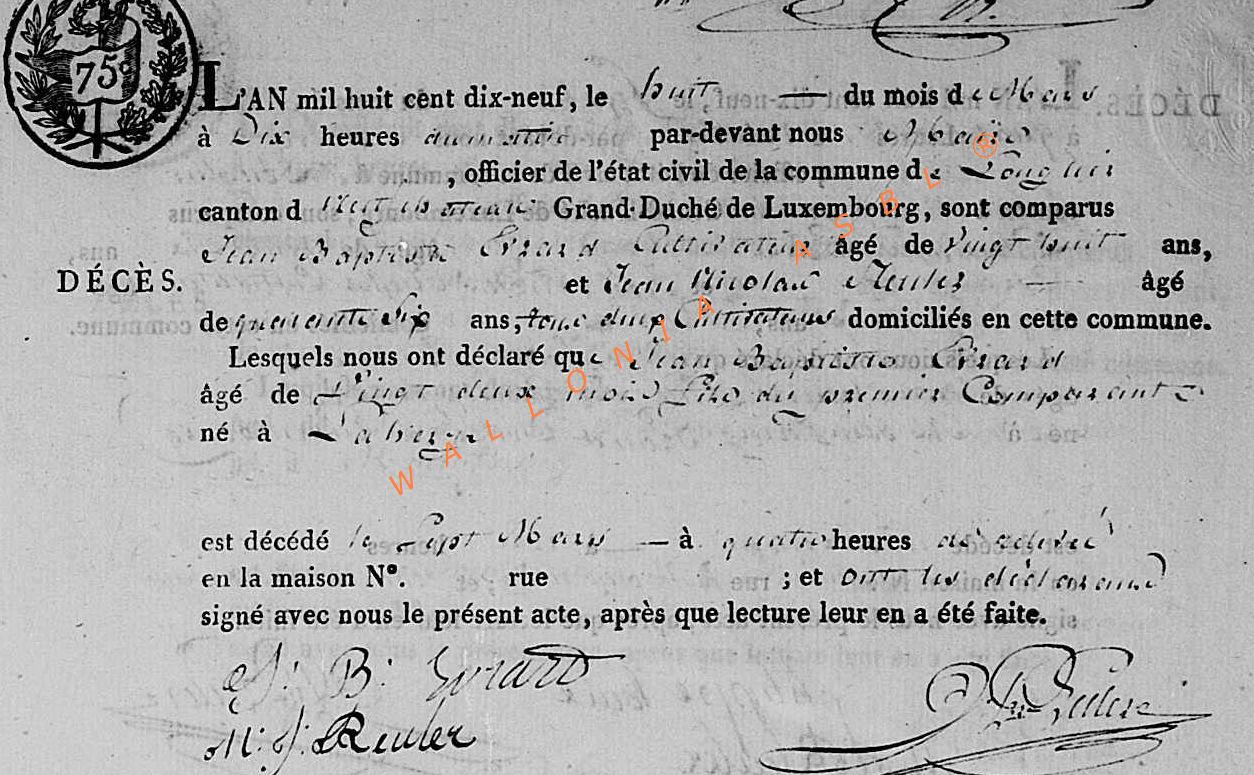 75c
L'AN mil huit cent dix-neuf, le huit — du mois de Mars
à Dix heures du matin par-devant nous Maire
, officier de l'état civil de la commune de Longlier
canton de Neufchateau Grand-Duché de Luxembourg, sont comparus
Jean Baptiste Evrard Cultivateur âgé de Vingt huit ans,
DÉCÈS. et Jean Nicolas Reuler — âgé
de quarante Six ans, tous deux Cultivateurs domiciliés en cette commune.
Lesquels nous ont déclaré que Jean Baptiste Evrard
âgé de Vingt deux mois Fils du premier Comparant
né à
est décédé le Sept Mars — à quatre heures
en la maison N°. rue ; et ont les déclarans
signé avec nous le présent acte, après que lecture leur en a été faite.
J: B: Evrard
M: J: Reuler
WALLONIA ASBL ®